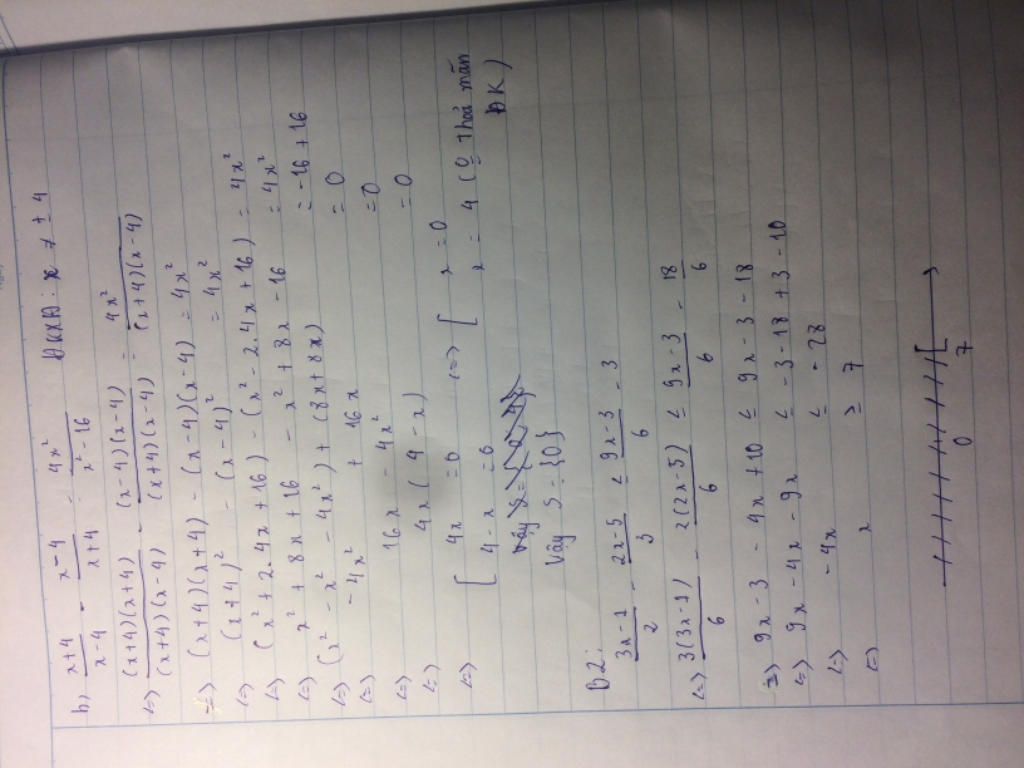 b) x+4/x-4 - x-4/x+4 = 4x²/x²-16 ĐKXĐ: x ≠ ± 4
<=> (x+4)(x+4)/(x+4)(x-4) - (x-4)(x-4)/(x+4)(x-4) = 4x²/(x+4)(x-4)
=> (x+4)(x+4) - (x-4)(x-4) = 4x²
<=> (x+4)² - (x-4)² = 4x²
<=> (x²+2.4x+16) - (x²-2.4x+16) = 4x²
<=> x²+8x+16 - x²+8x-16 = 4x²
<=> (x²-x²-4x²)+(8x+8x) = -16+16
<=> -4x² + 16x = 0
<=> 16x - 4x² = 0
<=> 4x(4-x) = 0
<=> [ 4x = 0 <=> [ x = 0
4-x = 0 x = 4 (0 thỏa mãn ĐK)
Vậy S = {0}
B2:
3x-1/2 - 2x-5/3 ≤ 9x-3/6 - 3
<=> 3(3x-1)/6 - 2(2x-5)/6 ≤ 9x-3/6 - 18/6
=> 9x-3 - 4x+10 ≤ 9x-3-18
<=> 9x-4x-9x ≤ -3-18+3-10
<=> -4x ≤ -28
<=> x ≥ 7
0 7